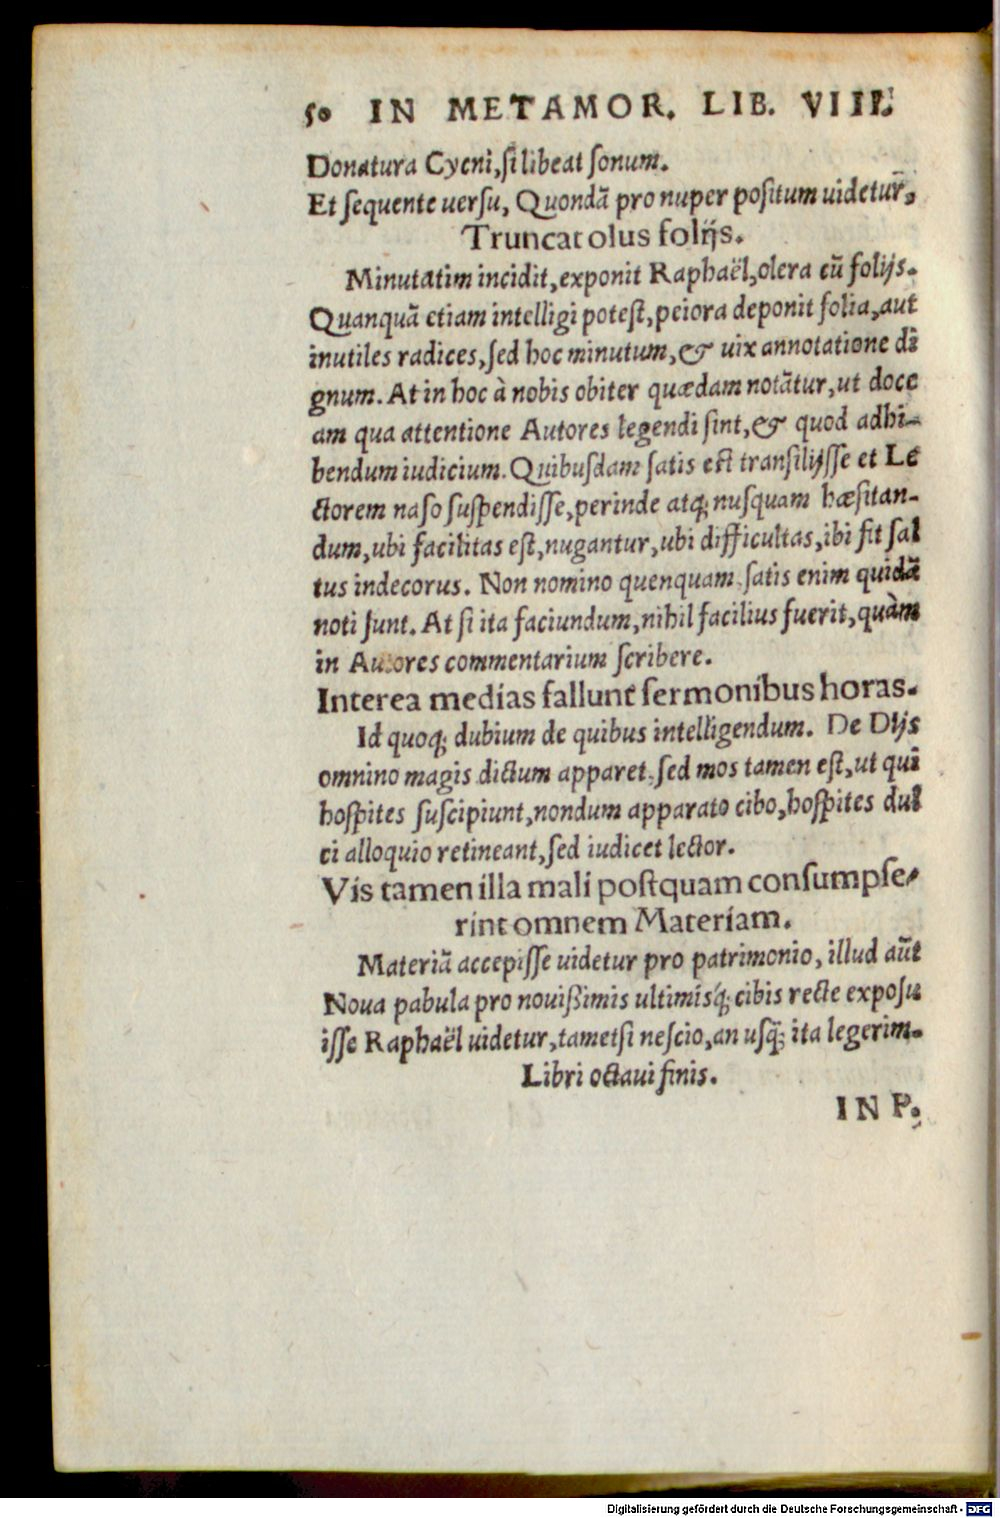 50 IN METAMOR. LIB. VIII.
Donatura Cycni, si libeat sonum.
Et sequente uersu, Quondā pro nuper positum uidetur.
Truncat olus folijs.
Minutatim incidit, exponit Raphaël, olera cū folijs.
Quanquā etiam intelligi potest, peiora deponit folia, aut
inutiles radices, sed hoc minutum, & uix annotatione di
gnum. At in hoc à nobis obiter quædam notātur, ut doce
am qua attentione Autores legendi sint, & quod adhi-
bendum iudicium. Quibusdam satis est transilijsse et Le
ctorem naso suspendisse, perinde atq; nusquam hæsitan-
dum, ubi facilitas est, nugantur, ubi difficultas, ibi fit sal
tus indecorus. Non nomino quenquam, satis enim quidā
noti sunt. At si ita faciundum, nihil facilius fuerit, quàm
in Autores commentarium scribere.
Interea medias fallunt sermonibus horas.
Id quoq; dubium de quibus intelligendum. De Dijs
omnino magis dictum apparet, sed mos tamen est, ut qui
hospites suscipiunt, nondum apparato cibo, hospites dul
ci alloquio retineant, sed iudicet lector.
Vis tamen illa mali postquam consumpse-
rint omnem Materiam.
Materiā accepisse uidetur pro patrimonio, illud aūt
Noua pabula pro nouißimis ultimisq́; cibis recte exposu
isse Raphaël uidetur, tametsi nescio, an usq̃; ita legerim.
Libri octaui finis.
IN P.
Digitalisierung gefördert durch die Deutsche Forschungsgemeinschaft - DFG